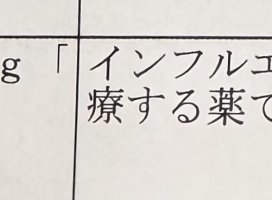 g「インフルエ
療する薬で